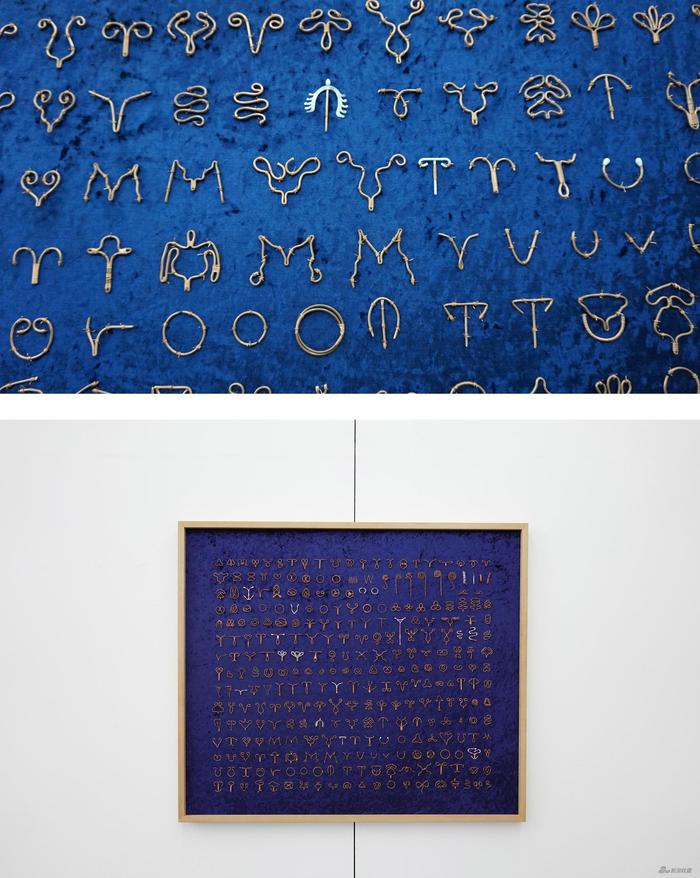 新浪收藏